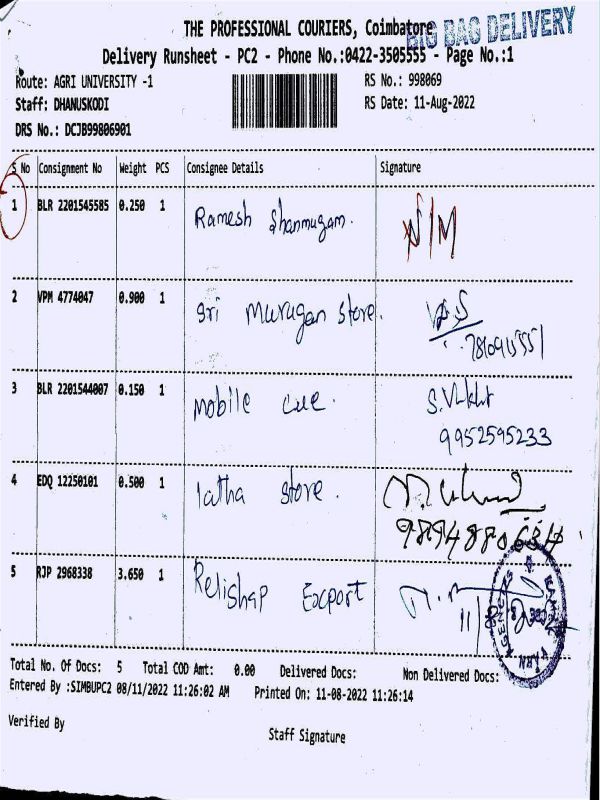 THE PROFESSIONAL COURIERS, Coimbatore
BIG BAG DELIVERY
Delivery Runsheet - PC2 - Phone No.:0422-3505555 - Page No.:1
Route: AGRI UNIVERSITY -1 RS No.: 998069
Staff: DHANUSKODI RS Date: 11-Aug-2022
DRS No.: DCJB99806901
S No Consignment No Weight PCS Consignee Details Signature
1 BLR 2201545585 0.250 1 Ramesh Shanmugam. N/M
2 VPM 4774047 0.900 1 Sri Murugan Store.
3 BLR 2201544007 0.150 1 Mobile cue.
9952595233
4 EDQ 12250101 0.500 1 latha store.
5 RJP 2968338 3.650 1 Relishap Export
Total No. Of Docs: 5 Total COD Amt: 0.00 Delivered Docs: Non Delivered Docs:
Entered By :SIMBUPC2 08/11/2022 11:26:02 AM Printed On: 11-08-2022 11:26:14
Verified By Staff Signature